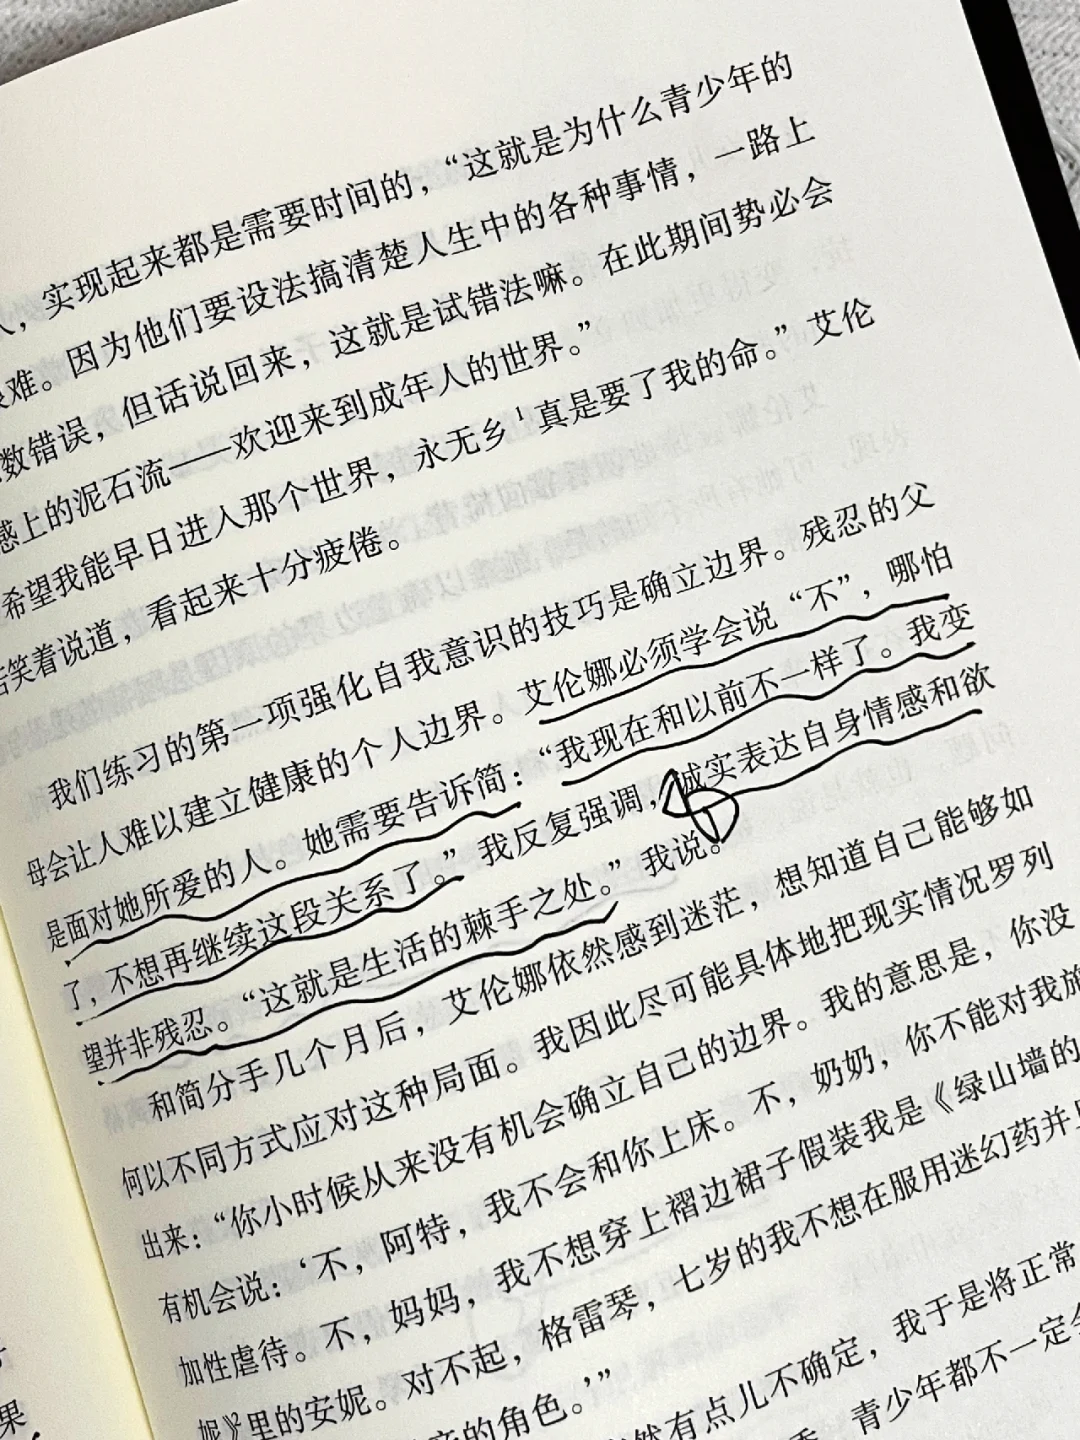 ，实现起来都是需要时间的，“这就是为什么青少年的
难。因为他们要设法搞清楚人生中的各种事情，一路上
数错误，但话说回来，这就是试错法嘛。在此期间势必会
感上的泥石流——欢迎来到成年人的世界。”
希望我能早日进入那个世界，永无乡¹真是要了我的命。”艾伦
笑着说道，看起来十分疲倦。
我们练习的第一项强化自我意识的技巧是确立边界。残忍的父
母会让人难以建立健康的个人边界。艾伦娜必须学会说“不”，哪怕
是面对她所爱的人。她需要告诉简：“我现在和以前不一样了。我变
了，不想再继续这段关系了。”我反复强调，诚实表达自身情感和欲
望并非残忍。“这就是生活的棘手之处。”我说。
和简分手几个月后，艾伦娜依然感到迷茫，想知道自己能够如
何以不同方式应对这种局面。我因此尽可能具体地把现实情况罗列
出来：“你小时候从来没有机会确立自己的边界。我的意思是，你没
有机会说：‘不，阿特，我不会和你上床。不，奶奶，你不能对我施
加性虐待。不，妈妈，我不想穿上褶边裙子假装我是《绿山墙的
妮》²里的安妮。对不起，格雷琴，七岁的我不想在服用迷幻药并且
的角色。’”
然有点儿不确定，我于是将正常
青少年都不一定会
果